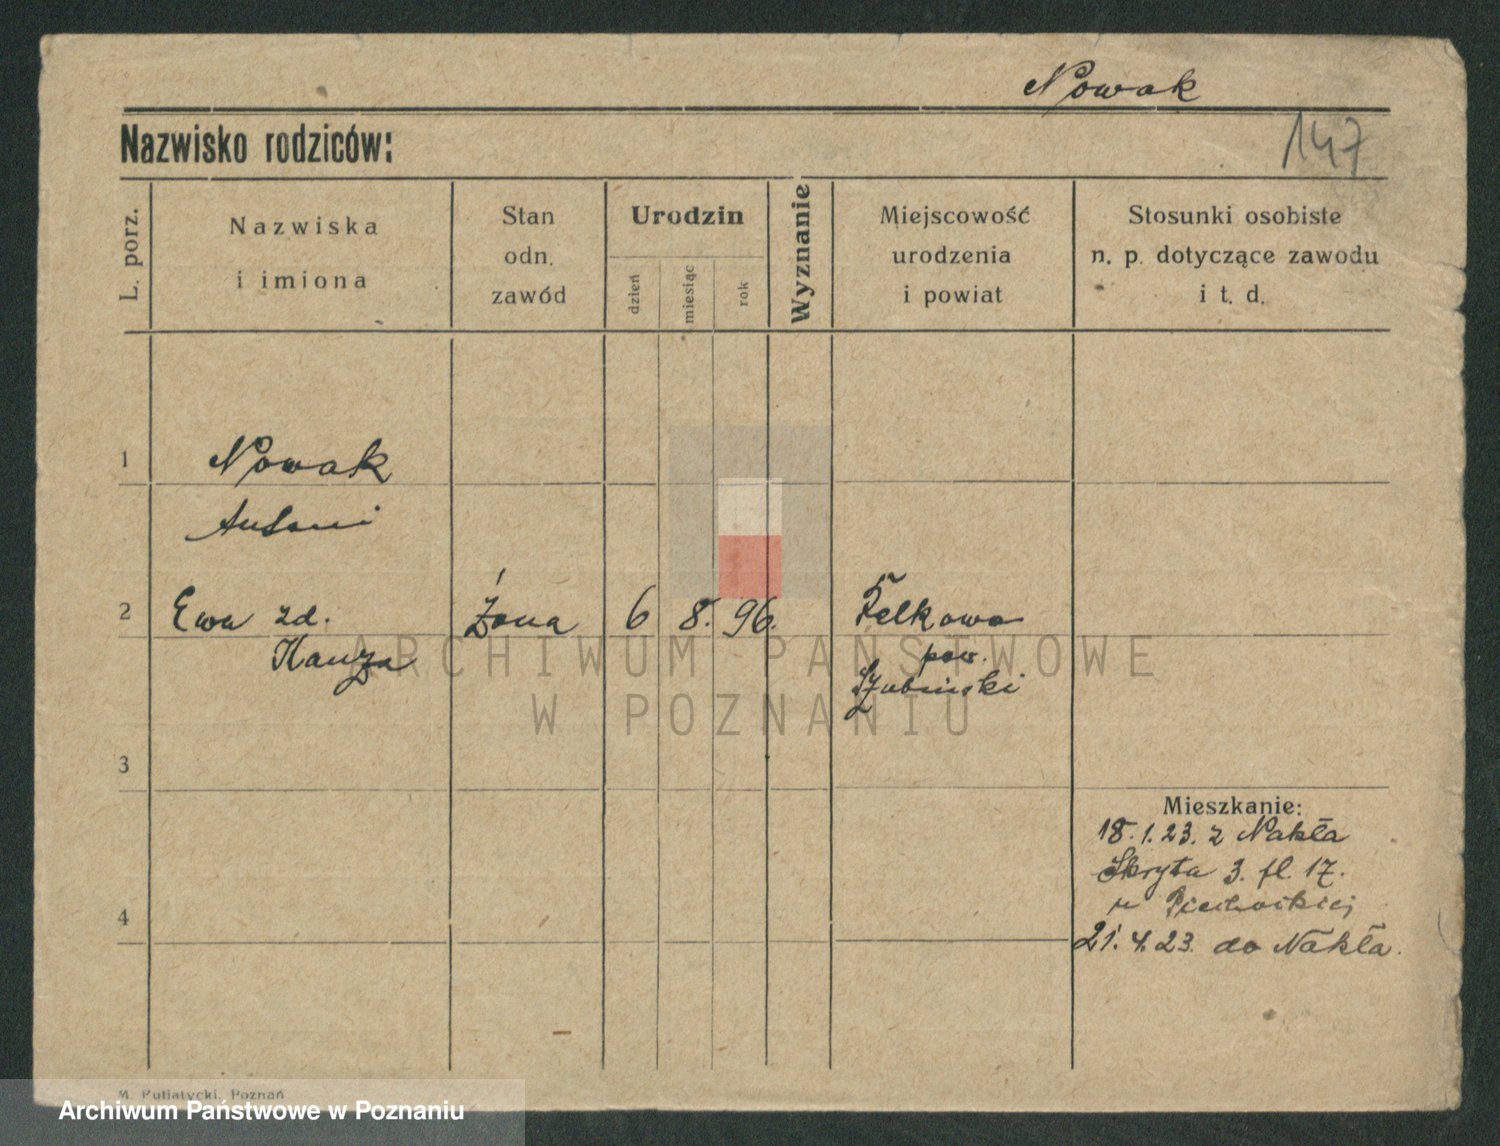 Nowak
147
Nazwisko rodziców:
L. porz.
Nazwiska
i imiona
Stan
odn.
zawód
Urodzin
dzień
miesiąc
rok
Wyznanie
Miejscowość
urodzenia
i powiat
Stosunki osobiste
n. p. dotyczące zawodu
i t. d.
1
Nowak
Antoni
2
Ewa zd. Żona 6 8. 96.
pow.
Szubiński
3
Mieszkanie:
18.1.23. z Nakła
Skryta 3. fl. 17.
u Piechockiej
4
21.4.23. do Nakła.
ARCHIWUM PAŃSTWOWE
W POZNANIU
M. Putiatycki, Poznań
Archiwum Państwowe w Poznaniu